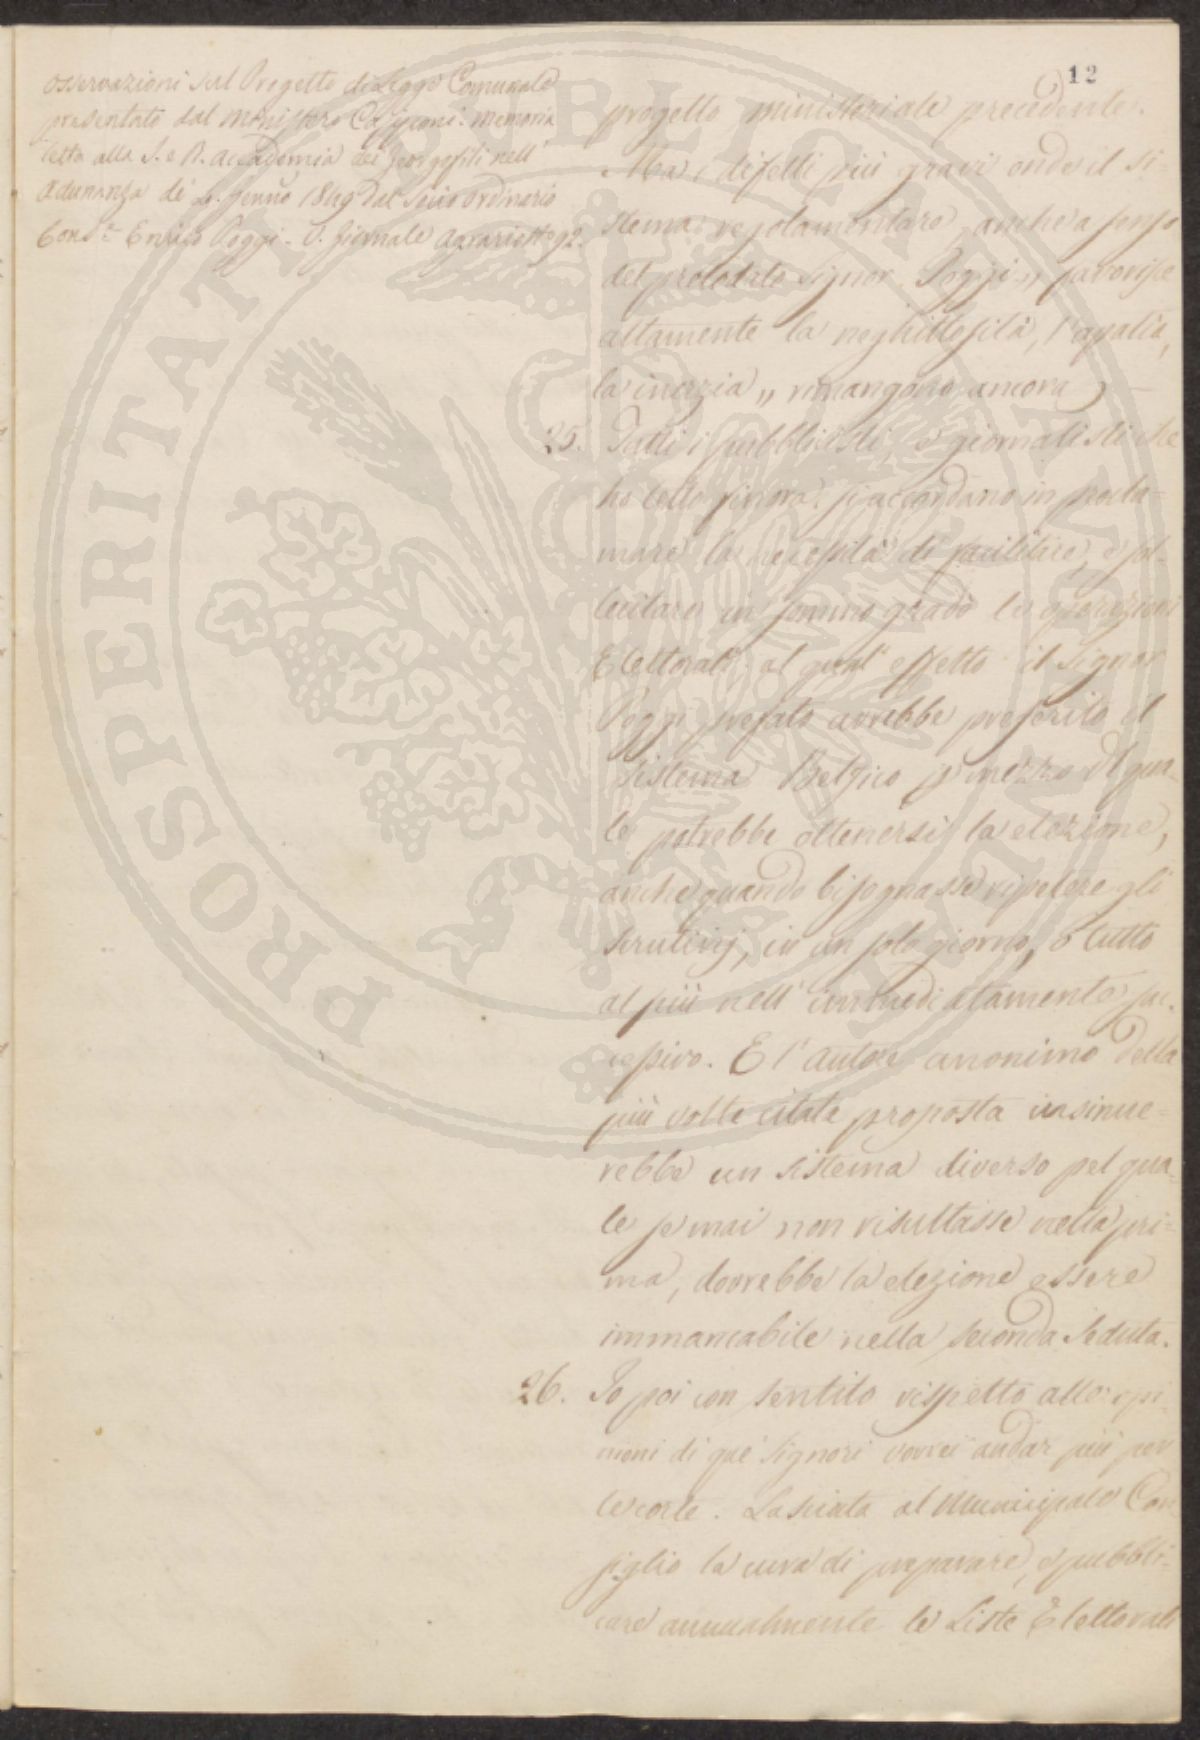 12
Osservazioni sul Progetto di Legge Comunale
presentato dal Ministero Capponi. Memoria
letta alla I. e R. Accademia dei Georgofili nell'
Adunanza di Genno 1849 dal Socio Ordinario
Cons.re Enrico Poggi. V. Giornale Agrario
progetto ministeriale precedente.
Ma i difetti più gravi onde il si-
stema regolamentare, anche a senso
del prelodato Signor Poggi „ favorisce
altamente la neghittosità, l'apatia,
la inerzia „ rimangono ancora
25. Tutti i pubblicisti, e giornalisti che
ho letto finora si accordano in procla-
mare la necessità di facilitare, e sol-
lecitare in sommo grado le operazioni
Elettorali al qual effetto il Signor
Poggi prefato avrebbe preferito il
Sistema Belgico p mezzo del qua-
le potrebbe ottenersi la elezione,
anche quando bisognasse ripetere gli
scrutinj, in un solo giorno, o tutto
al più nell' immediatamente suc-
cessivo. E l' autore anonimo della
più volte citata proposta insinue-
rebbe un sistema diverso pel qua-
le se mai non risultasse nella pri-
ma, dovrebbe la elezione essere
immancabile nella seconda Seduta.
26. Io poi con sentito rispetto alle opi-
nioni di que' Signori vorrei andar più per
le corte. Lasciata al Municipale Con-
siglio la cura di preparare, e pubbli-
care annualmente le Liste Elettorali
PROSPERITATI PUBLICAE